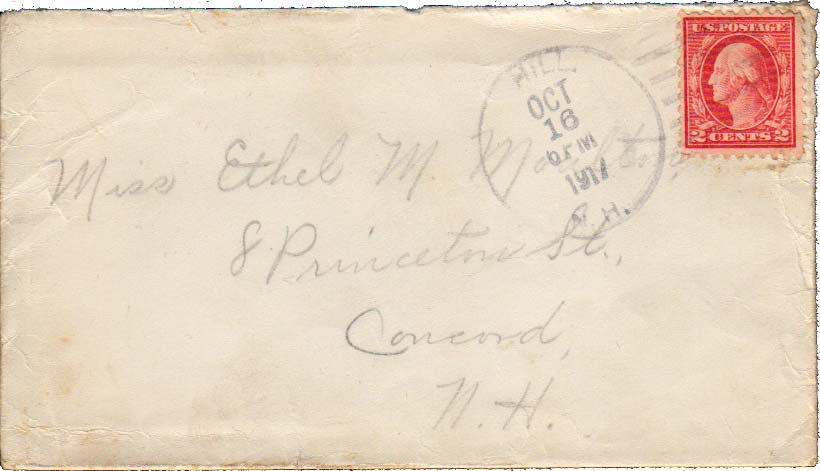 U.S. POSTAGE
2 CENTS 2
HILL,
OCT
16
6 PM
1917
N.H.
Miss Ethel M.
8 Princeton St.,
Concord,
N.H.